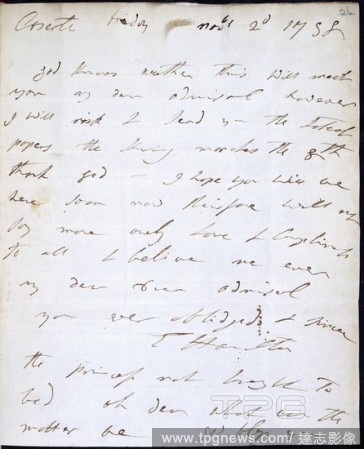 Caserta friday novbr 2d 1798
26
god knows wether this will meet
you my dear admiral however
I will risk & send it the
papers the King marches the 8th
thank god I hope you will be
here soon now
say more only love & Compliments
to all & believe me ever
my dear dear admiral
your ever obliged & sincere
E Hamilton
the princess not brought to
bed oh dear what can the
matter be god bless
TPG
www.tpgnews.com | 達志影像